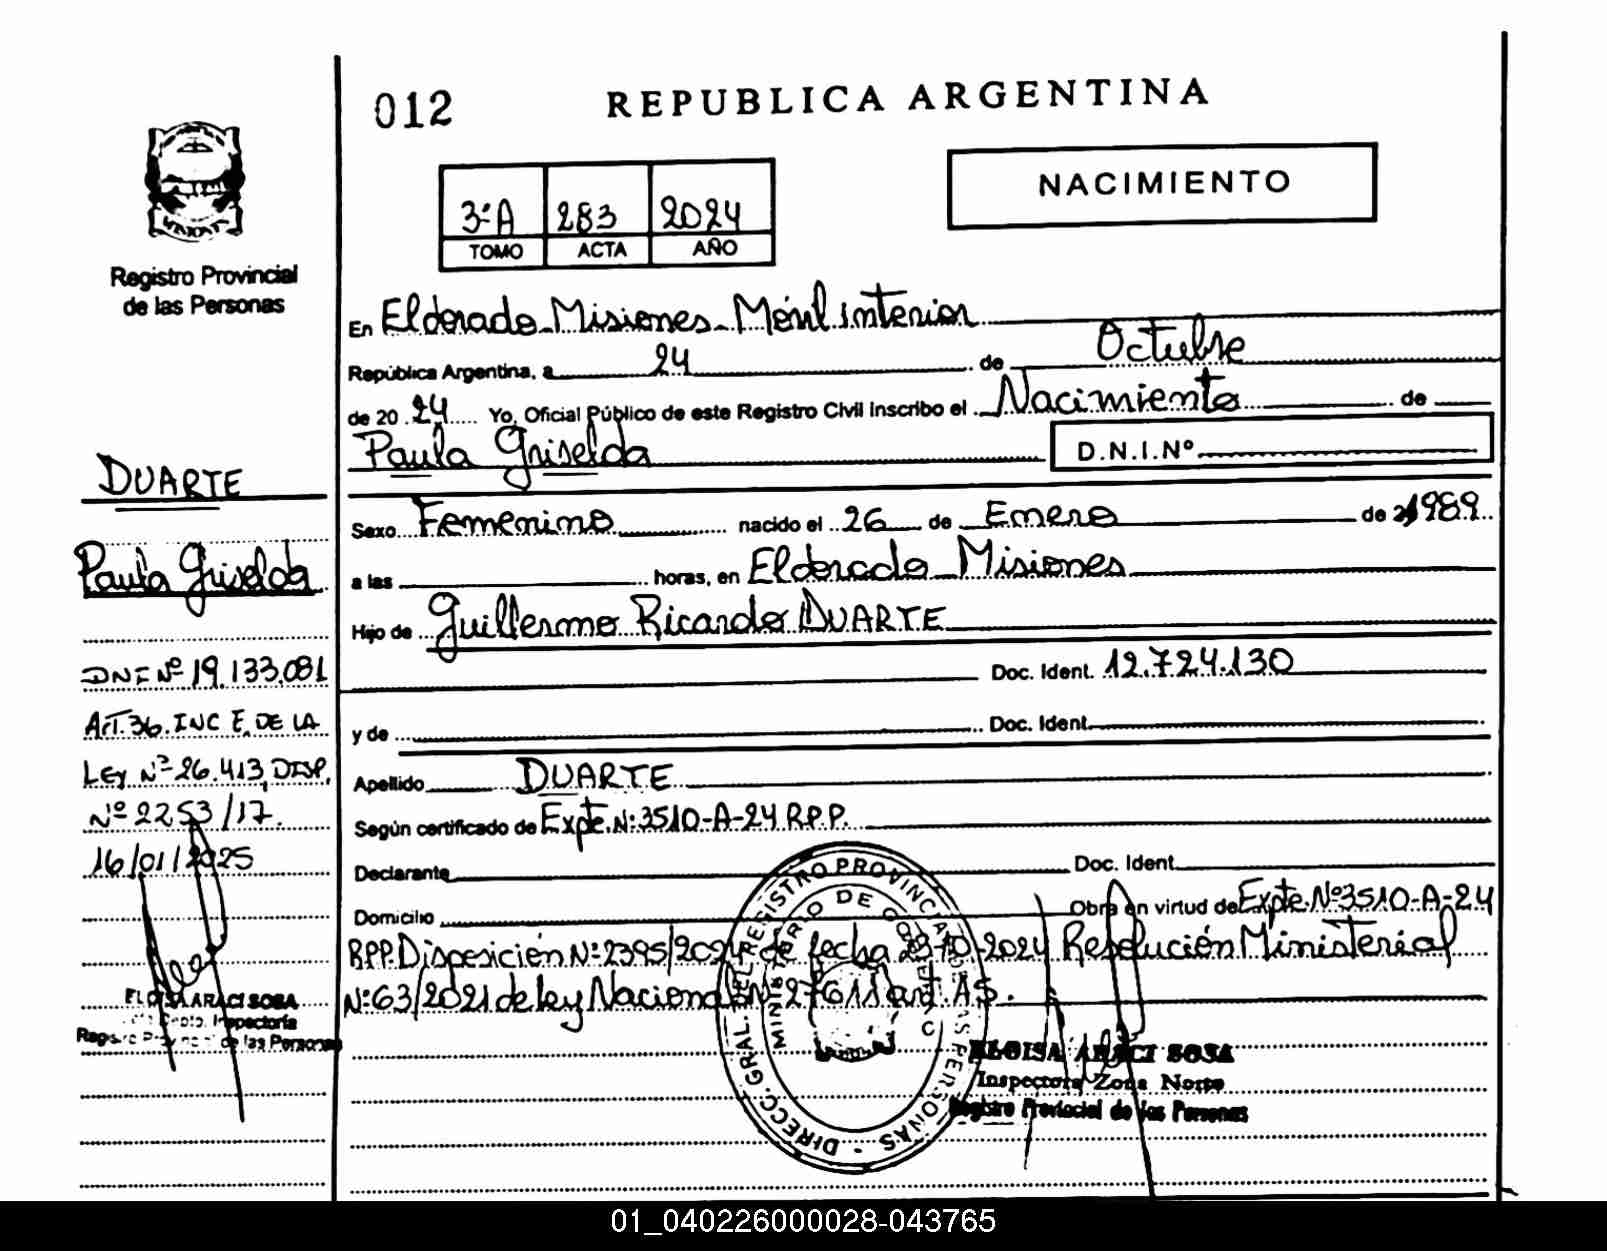 012
REPUBLICA ARGENTINA
NACIMIENTO
3ºA 283 2024
TOMO ACTA AÑO
MISIONES
Registro Provincial
de las Personas
DUARTE
Paula Griselda
DNI Nº 19.133.081
Art. 36. INC E. DE LA
LEY Nº 26.413, DISP.
Nº 2253/17.
16/01/2025
ELOISA ARACI SOSA
Dpto. Inspectoría
Registro Provincial de las Personas
En Eldorado Misiones Móvil interior
República Argentina, a 24 de Octubre
de 20 24 Yo, Oficial Público de este Registro Civil Inscribo el Nacimiento de
Paula Griselda D.N.I.Nº
Sexo Femenino nacido el 26 de Enero de 1989
a las horas, en Eldorado Misiones
Hijo de Guillermo Ricardo DUARTE
Doc. Ident. 12.724.130
y de Doc. Ident.
Apellido DUARTE
Según certificado de Expte. Nº:3510-A-24 R.P.P.
Declarante Doc. Ident.
Domicilio Obra en virtud de Expte. Nº3510-A-24
RPP. Disposición Nº:2395/2024 de fecha 10-2024 Resolución Ministerial
Nº:63/2021 de ley Nacional Nº 27611 art. 15.
DIRECC. GRAL. DEL REGISTRO PROVINCIAL DE LAS PERSONAS
MINISTERIO DE GOBIERNO
ELOISA ARACI SOSA
Inspectora Zona Norte
Registro Provincial de las Personas
01_040226000028-043765